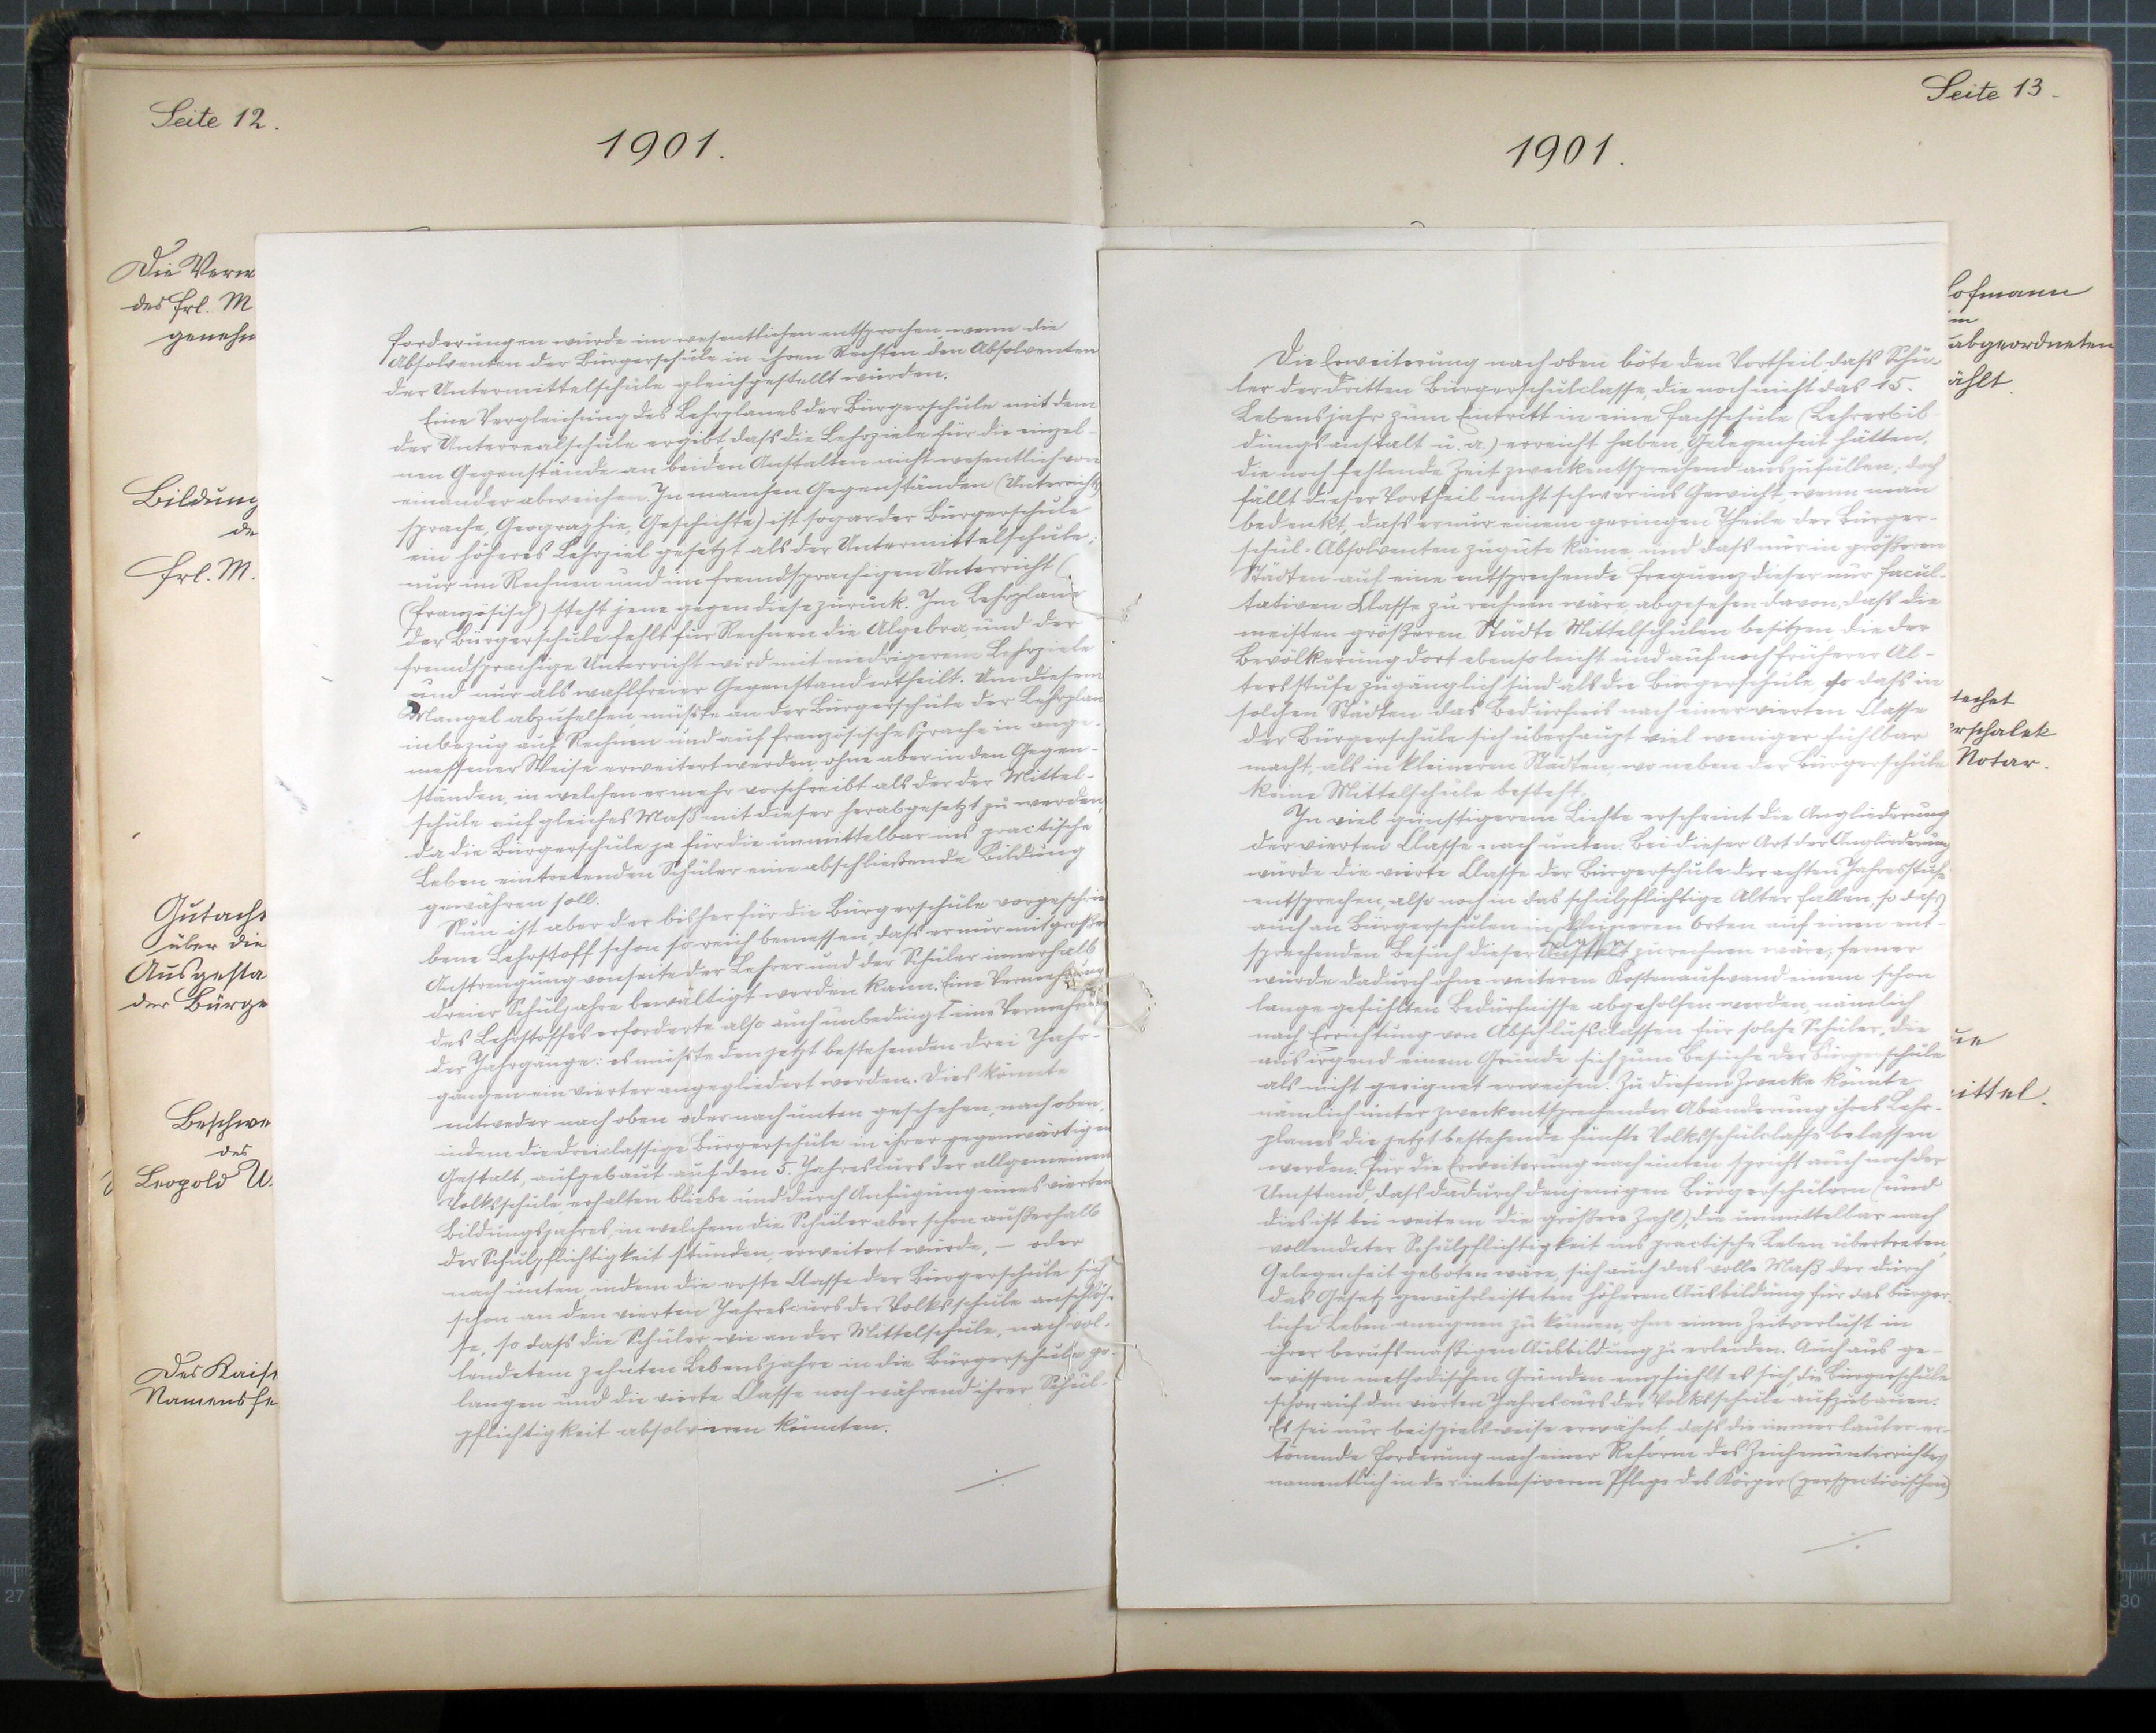 Seite 12.
1901.
Die Verw
des Frl. M
genehm
Bildung
de
Frl. M.
Gutacht
über die
Ausgesta
der Bürge
Beschwe
des
Leopold U.
Des Kaise
Namensfe
Forderungen würde im wesentlichen entsprochen, wenn die
Absolventen der Bürgerschule in ihren Rechten den Absolventen
der Untermittelschule gleichgestellt würden.
Eine Vergleichung des Lehrplanes der Bürgerschule mit dem
der Unterrealschule ergibt, dass die Lehrziele für die einzel-
nen Gegenstände an beiden Anstalten nicht wesentlich von
einander abweichen. In manchen Gegenständen (Unterrichts
sprache, Geographie, Geschichte) ist sogar der Bürgerschule
ein höheres Lehrziel gesetzt als der Untermittelschule;
nur im Rechnen und im fremdsprachigen Unterricht (
(Französisch) steht jene gegen diese zurück. Im Lehrplane
der Bürgerschule fehlt für Rechnen die Algebra, und der
fremdsprachige Unterricht wird mit niedrigerem Lehrziele
und nur als wahlfreier Gegenstand ertheilt. Um diesem
Mangel abzuhelfen müsste an der Bürgerschule der Lehrplan
inbezug auf Rechnen und auf französische Sprache in ange-
messener Weise erweitert werden, ohne aber in den Gegen-
ständen, in welchen er mehr vorschreibt als der der Mittel-
schule auf gleiches Maß mit dieser herabgesetzt zu werden,
da die Bürgerschule ja für die unmittelbar ins practische
Leben eintretenden Schüler eine abschließende Bildung
gewähren soll.
Nun ist aber der bisher für die Bürgerschule vorgeschrie
bene Lehrstoff schon so reich bemessen, dass er nur mit großer
Anstrengung vonseite der Lehrer und der Schüler innerhalb
dreier Schuljahre bewältigt werden kann. Eine Vermehrung
des Lehrstoffes erforderte also auch unbedingt eine Vermehrung
der Jahrgänge: es müsste den jetzt bestehenden drei Jahr-
gängen ein vierter angegliedert werden. Dies könnte
entweder nach oben oder nach unten geschehen, nach oben,
indem die dreiclassige Bürgerschule in ihrer gegenwärtigen
Gestalt, aufgebaut auf den 5. Jahrescurs der allgemeinen
Volksschule erhalten bliebe und durch Anfügung eines vierten
Bildungsjahres, in welchem die Schüler aber schon außerhalb
der Schulpflichtigkeit stünden, erweitert würde, – oder
nach unten, indem die erste Classe der Bürgerschule sich
schon an den vierten Jahrescurs der Volksschule anschlös-
se, so dass die Schüler, wie an der Mittelschule, nach vol-
lendetem zehnten Lebensjahre in die Bürgerschule ge-
langen und die vierte Classe noch während ihrer Schul-
pflichtigkeit absolvieren könnten.
./.
Seite 13.
1901.
Die Erweiterung nach oben böte den Vortheil, dass Schü-
ler der dritten Bürgerschulclasse, die noch nicht das 15.
Lebensjahr zum Eintritt in eine Fachschule (Lehrerbil-
dungsanstalt u. a.) erreicht haben, Gelegenheit hätten,
die noch fehlende Zeit zweckentsprechend auszufüllen; doch
fällt dieser Vortheil nicht schwer ins Gewicht, wenn man
bedenkt, dass er nur einem geringen Theile der Bürger-
schul-Absolventen zugute käme, und dass nur in größeren
Städten auf eine entsprechende Frequenz dieser nur facul-
tativen Classe zu rechnen wäre, abgesehen davon, dass die
meisten größeren Städte Mittelschulen besitzen, die der
Bevölkerung dort ebenso leicht und auf noch früherer Al-
tersstufe zugänglich sind als die Bürgerschule, so dass in
solchen Städten das Bedürfnis nach einer vierten Classe
der Bürgerschule sich überhaupt viel weniger fühlbar
macht, als in kleineren Städten, wo neben der Bürgerschule
keine Mittelschule besteht.
In viel günstigerem Lichte erscheint die Angliederung
der vierten Classe nach unten. Bei dieser Art der Angliederung
würde die vierte Classe der Bürgerschule der achten Jahresstufe
entsprechen, also noch in das schulpflichtige Alter fallen, so dass
auch an Bürgerschulen in kleineren Orten auf einen ent-
sprechenden Besuch dieser zu rechnen wäre; ferner
würde dadurch ohne weiteren Kostenaufwand einem schon
lange gefühlten Bedürfnisse abgeholfen werden, nämlich
nach Errichtung von Abschlussclassen für solche Schüler, die
aus irgend einem Grunde sich zum Besuche der Bürgerschule
als nicht geeignet erweisen. Zu diesem Zwecke könnte
nämlich unter zweckentsprechender Abänderung ihres Lehr-
planes die jetzt bestehende fünfte Volksschulclasse belassen
werden. Für die Erweiterung nach unten spricht auch noch der
Umstand, dass dadurch denjenigen Bürgerschülern (und
dies ist bei weitem die größere Zahl), die unmittelbar nach
vollendeter Schulpflichtigkeit ins practische Leben übertreten,
Gelegenheit geboten wäre, sich auch das volle Maß der durch
das Gesetz gewährleisteten höheren Ausbildung für das bürger-
liche Leben aneignen zu können, ohne einen Zeitverlust in
ihrer berufsmäßigen Ausbildung zu erleiden. Auch aus ge-
wissen methodischen Gründen empfiehlt es sich, die Bürgerschule
schon auf den vierten Jahrescurs der Volksschule aufzubauen.
Es sei nur beispielsweise erwähnt, dass die immer lauter er-
tönende Forderung nach einer Reform des Zeichenunterrichtes
namentlich in der intensiveren Pflege des Körper (perspectivischen)
./.
Hofmann
im
abgeordneten
ählt.
tachet
erschalek
Notar.
ue
mittel.